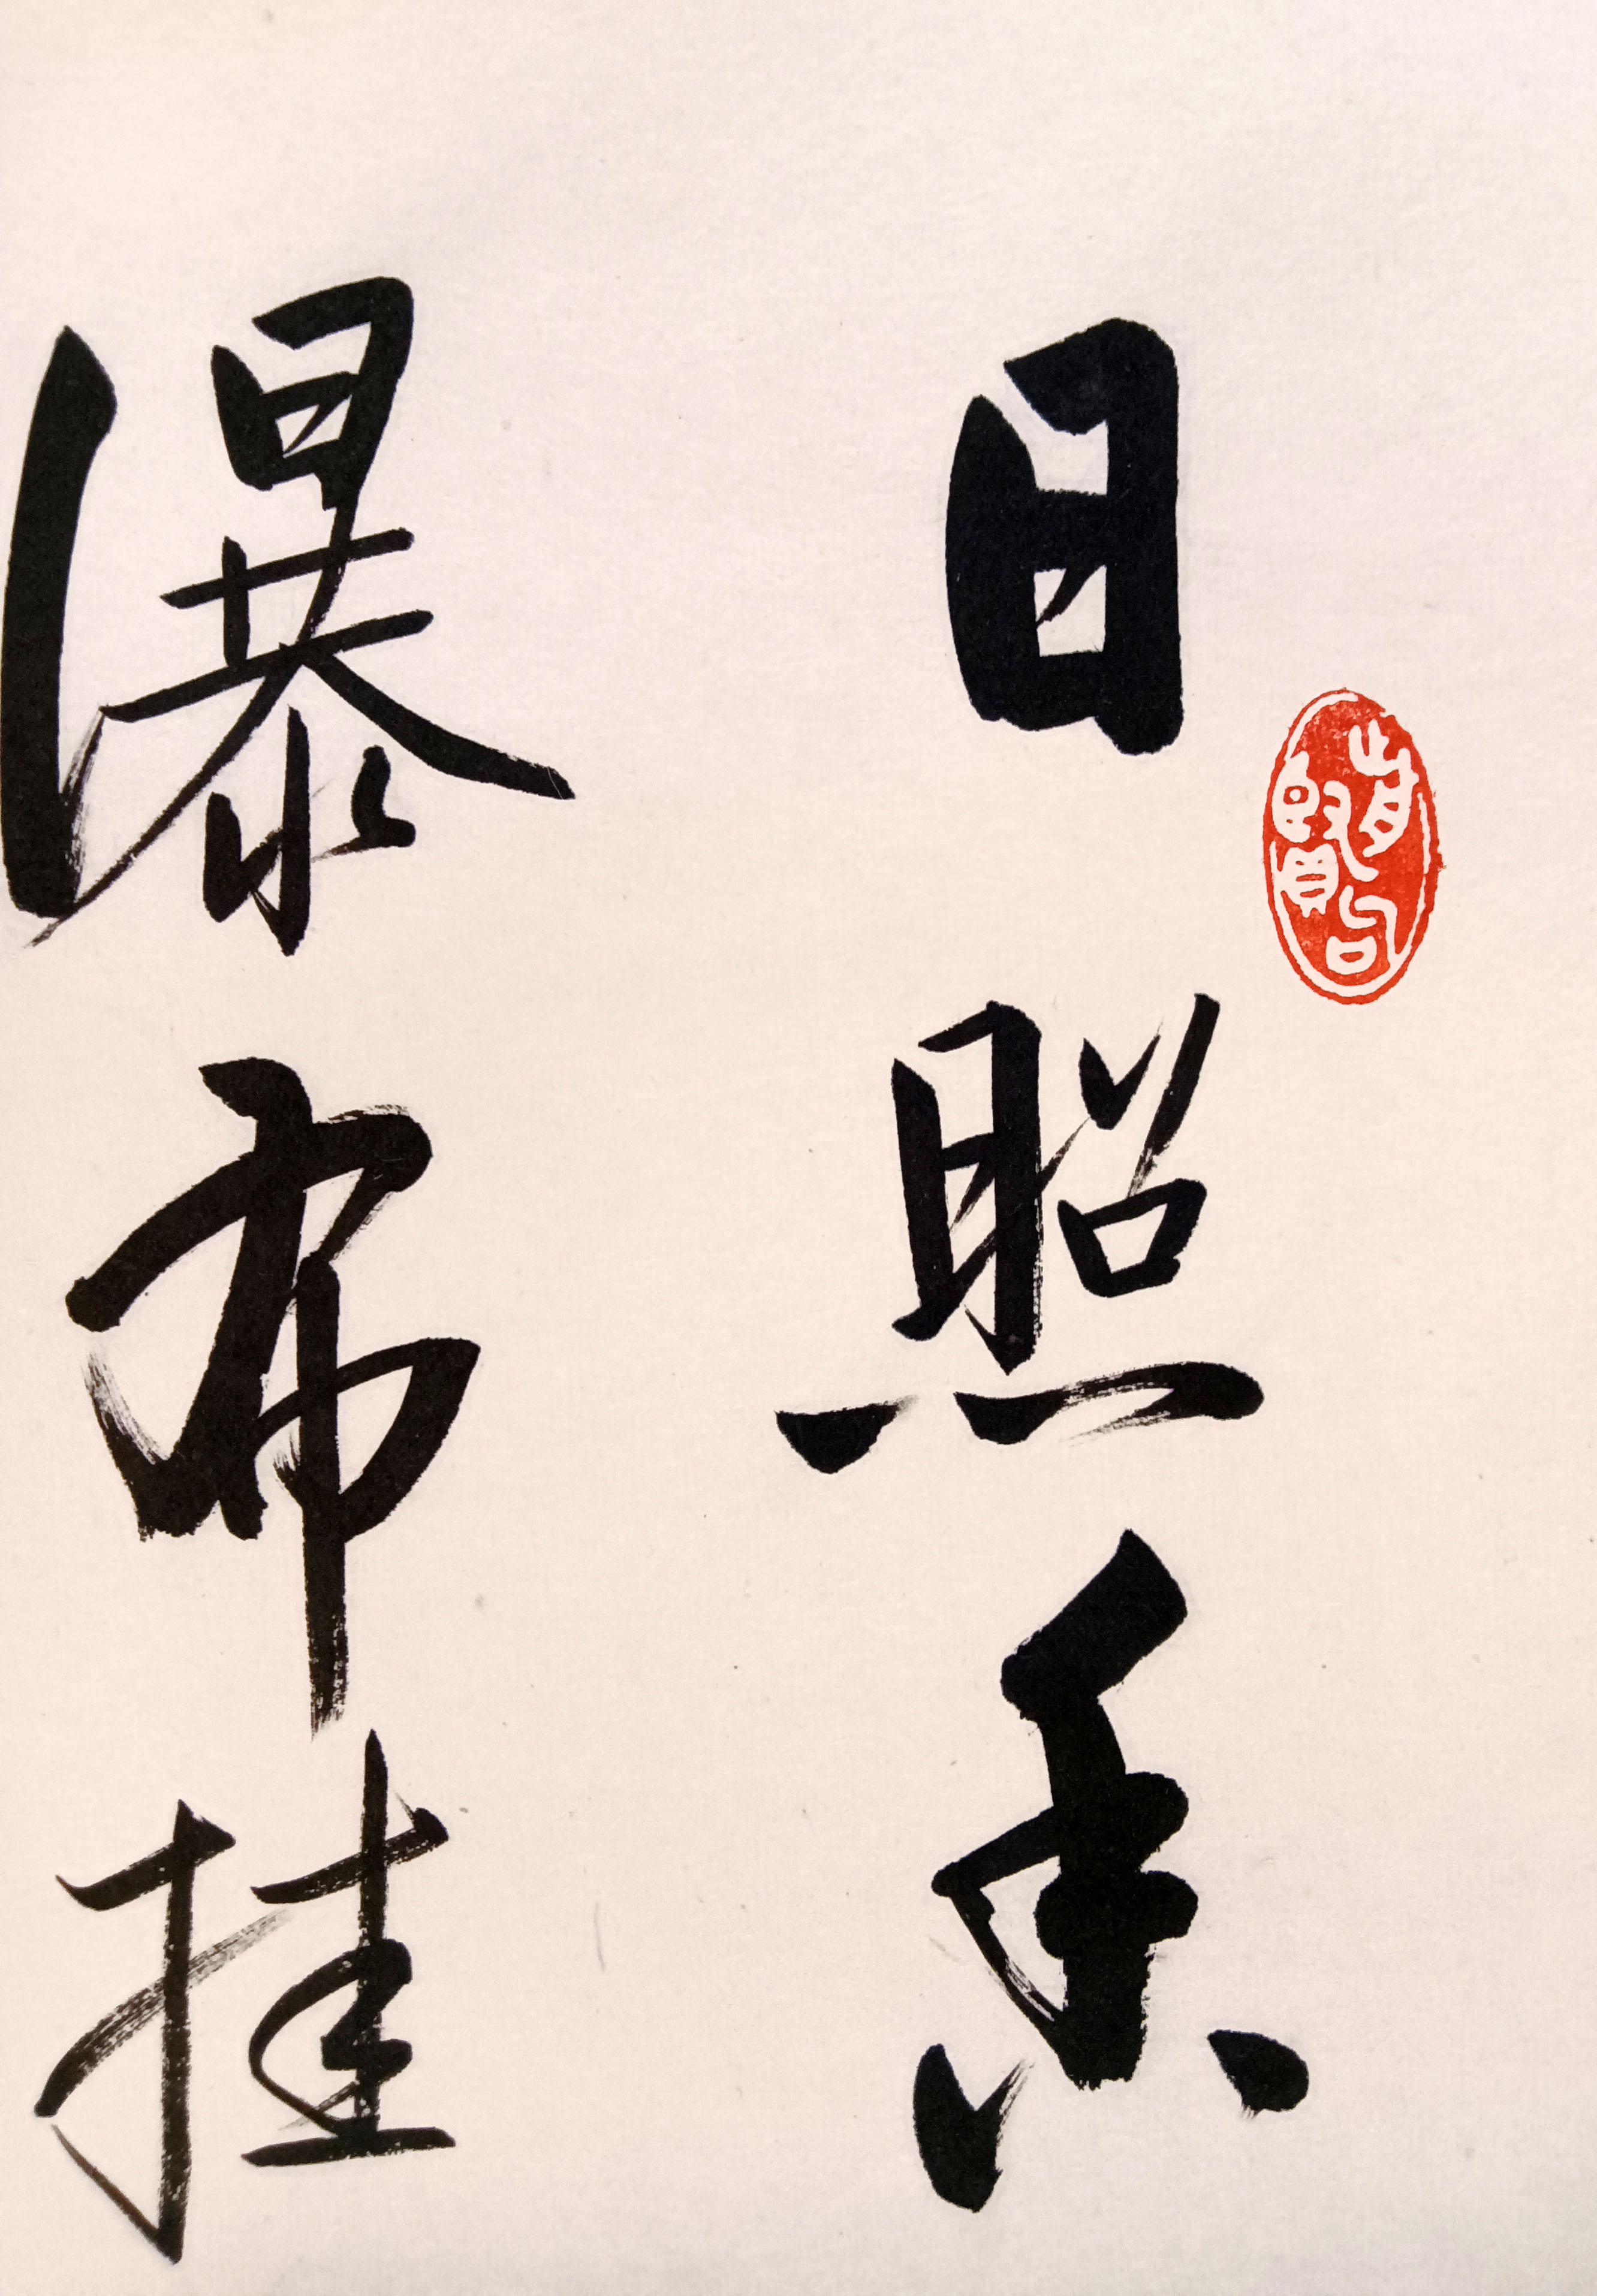 日照香
瀑布挂